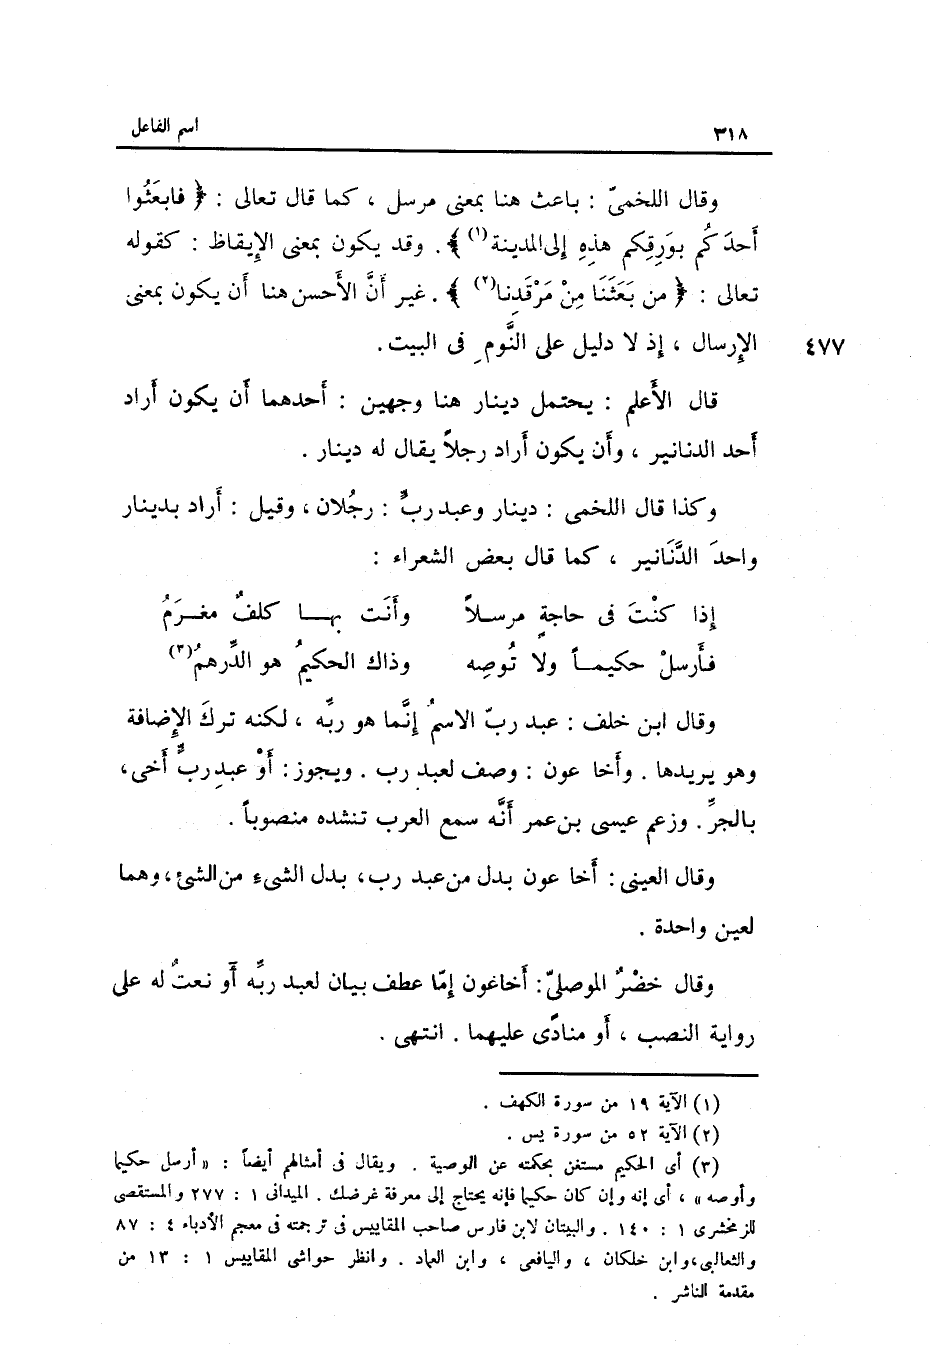 ٣١٨ اسم الفاعل
وقال اللخميّ : باعث هنا بمعنى مرسل ، كما قال تعالى : ﴿ فابعَثُوا
أحدَكُم بوَرِقِكم هذِهِ إلى المدينة(١) ﴾ . وقد يكون بمعنى الإيقاظ : كقوله
تعالى : ﴿ من بَعَثَنَا مِنْ مَرْقَدِنا(٢) ﴾ . غير أنَّ الأحسن هنا أن يكون بمعنى
الإرسال ، إذ لا دليل على النَّومِ فى البيت .
٤٧٧
قال الأعلم : يحتمل دينار هنا وجهين : أحدهما أن يكون أراد
أحد الدنانير ، وأن يكون أراد رجلاً يقال له دينار .
وكذا قال اللخمى : دينار وعبد ربٍّ : رجُلان ، وقيل : أراد بدينار
واحدَ الدَّنَانير ، كما قال بعض الشعراء :
إذا كنْتَ فى حاجةٍ مرسلاً وأنَت بها كلفٌ مغرَمُ
فأرسلْ حكيماً ولا تُوصِه وذاك الحكيمُ هو الدِّرهمُ(٣)
وقال ابن خلف : عبد ربّ الاسمُ إنَّما هو ربِّه ، لكنه تركَ الإضافة
وهو يريدها . وأخا عون : وصف لعبد رب . ويجوز : أوْ عبدِ ربٍّ أخى ،
بالجرِّ . وزعم عيسى بن عمر أنَّه سمع العرب تنشده منصوباً .
وقال العينى : أخا عون بدل من عبد رب ، بدل الشىء من الشئ ، وهما
لعين واحدة .
وقال خضْرٌ الموصلىّ : أخاغون إمّا عطف بيان لعبد ربِّه أو نعتٌ له على
رواية النصب ، أو منادًى عليهما . انتهى .
(١) الآية ١٩ من سورة الكهف .
(٢) الآية ٥٢ من سورة يس .
(٣) أى الحكيم مستغن بحكمته عن الوصية . ويقال فى أمثالهم أيضاً : « أرسل حكيما
وأوصه » ، أى إنه وإن كان حكيما فإنه يحتاج إلى معرفة غرضك . الميدانى ١ : ٢٧٧ والمستقصى
للزمخشرى ١ : ١٤٠ . والبيتان لابن فارس صاحب المقاييس فى ترجمته فى معجم الأدباء ٤ : ٨٧
والثعالبى ، وابن خلكان ، واليافعى ، وابن العماد . وانظر حواشى المقاييس ١ : ١٣ من
مقدمة الناشر .